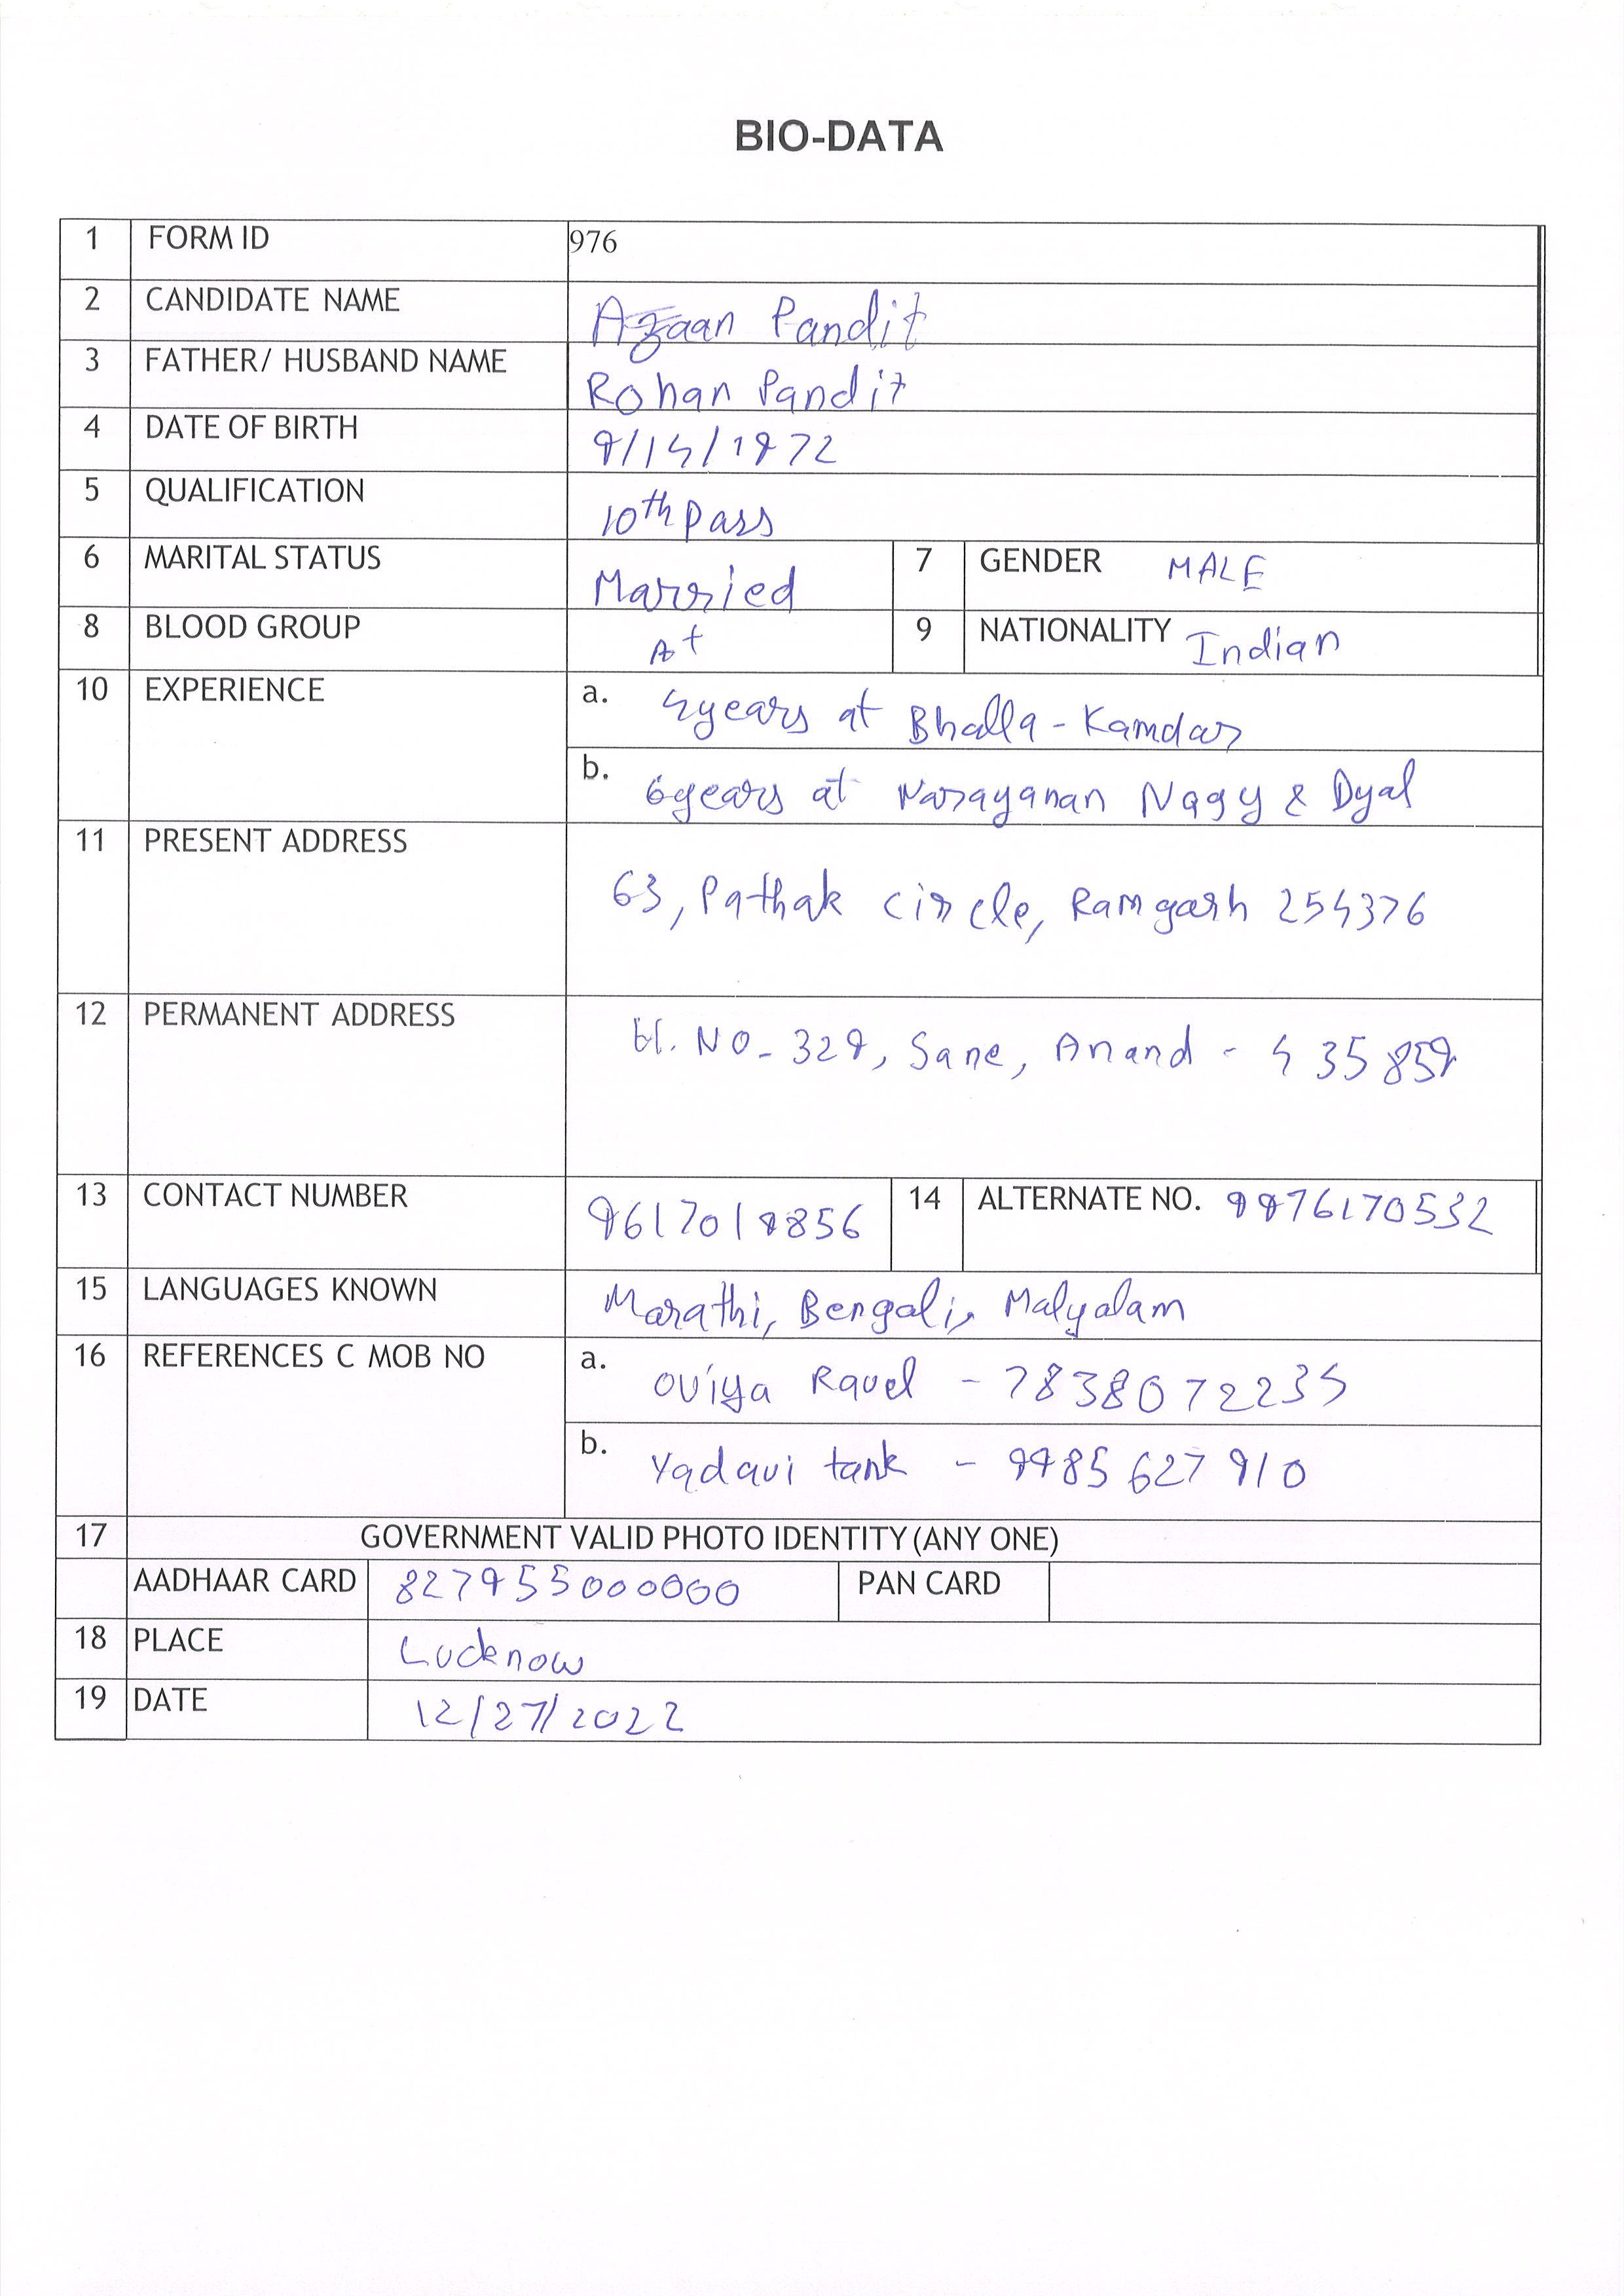 BIO-DATA
1 FORM ID 976
2 CANDIDATE NAME Azaan Pandit
3 FATHER/ HUSBAND NAME Rohan Pandit
4 DATE OF BIRTH 9/14/1972
5 QUALIFICATION 10th Pass
6 MARITAL STATUS Married 7 GENDER MALE
8 BLOOD GROUP A+ 9 NATIONALITY Indian
10 EXPERIENCE a. 4years at Bhalla-Kamdar
b. 6years at Narayanan Nagy & Dyal
11 PRESENT ADDRESS
63, Pathak circle, Ramgarh 254376
12 PERMANENT ADDRESS H. NO- 329, Sane, Anand - 435859
13 CONTACT NUMBER 9617019856 14 ALTERNATE NO. 9976170532
15 LANGUAGES KNOWN Marathi, Bengali, Malyalam
16 REFERENCES C MOB NO a. Oviya Ravel - 7838072234
b. Yadavi tank - 9985627910
17 GOVERNMENT VALID PHOTO IDENTITY (ANY ONE)
AADHAAR CARD 827955000000 PAN CARD
18 PLACE Lucknow
19 DATE 12/27/2022